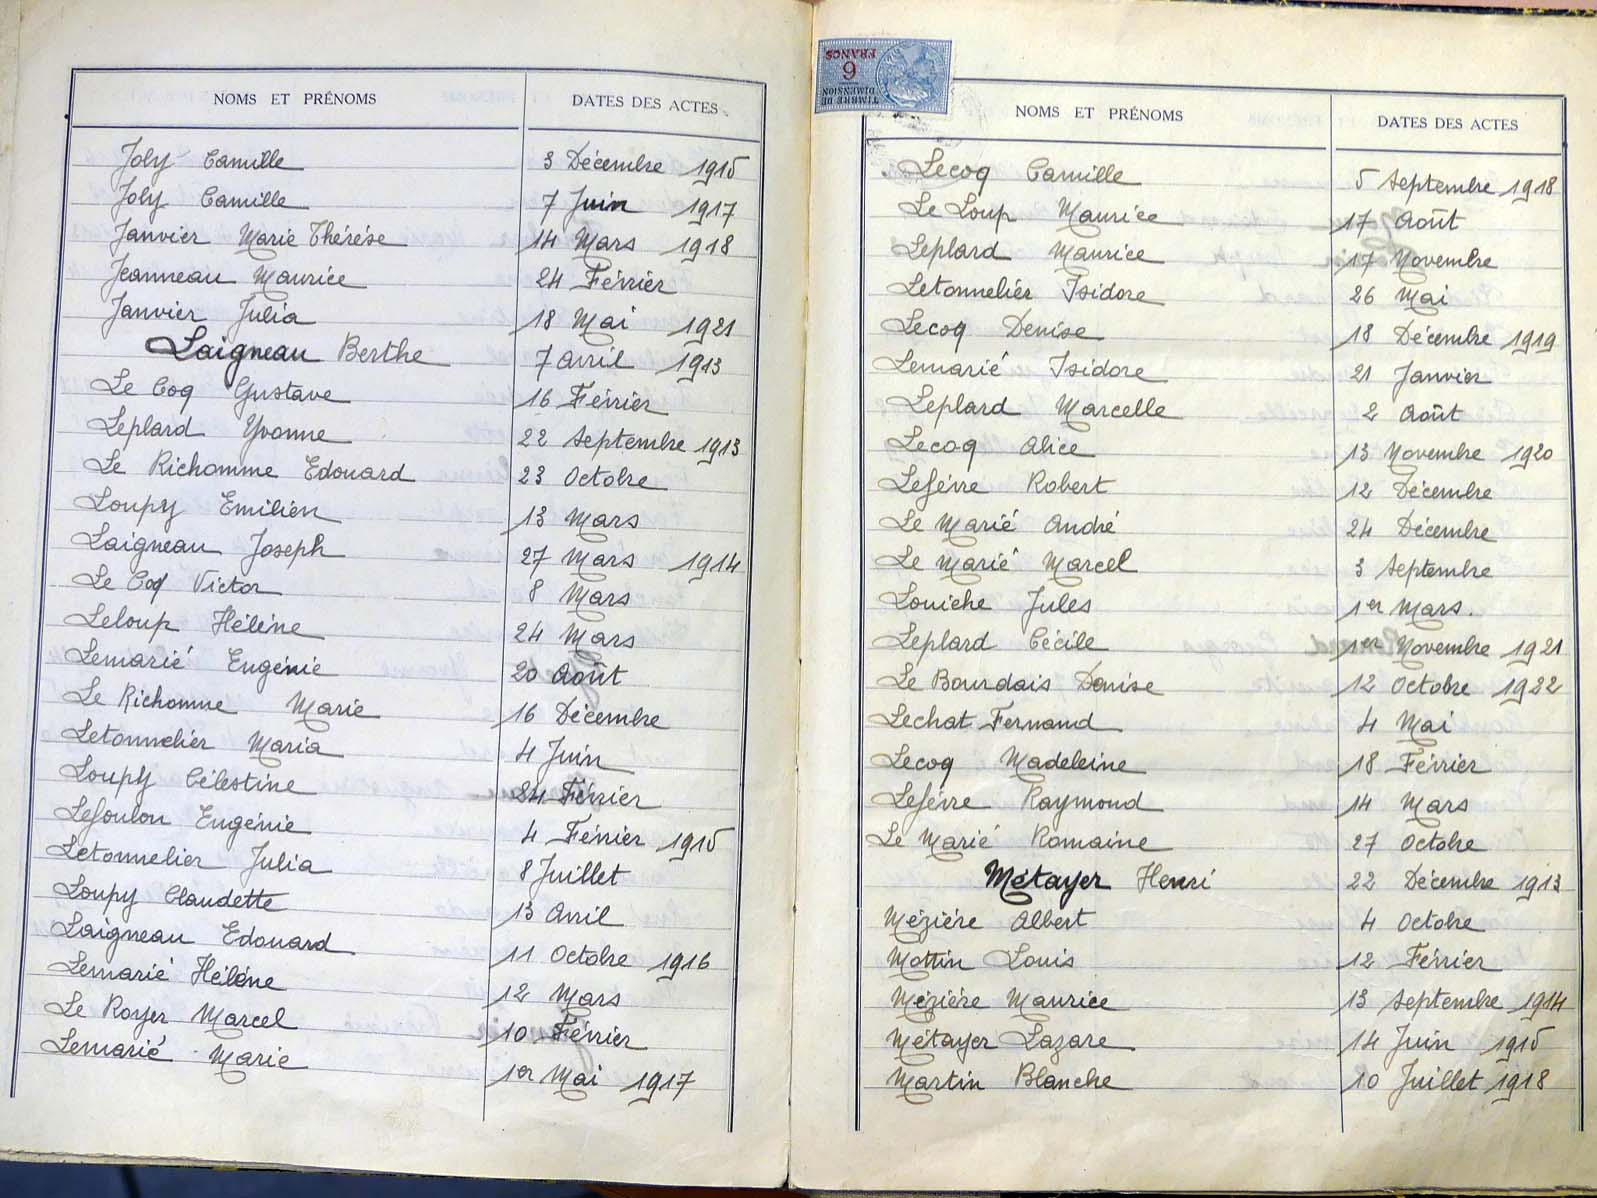 NOMS ET PRÉNOMS DATES DES ACTES
Joly Camille 3 Décembre 1915
Joly Camille 7 Juin 1917
Janvier Marie Thérèse 14 Mars 1918
Jeanneau Maurice 24 Février
Janvier Julia 18 Mai 1921
Laigneau Berthe 7 Avril 1913
Le Coq Gustave 16 Février
Leplard Yvonne 22 Septembre 1913
Le Richomme Edouard 23 Octobre
Loupy Emilien 13 Mars
Laigneau Joseph 27 Mars 1914
Le Coq Victor 8 Mars
Leloup Hélène 24 Mars
Lemarié Eugénie 20 Août
Le Richomme Marie 16 Décembre
Letonnelier Maria 4 Juin
Loupy Célestine 24 Février
Lefoulon Eugénie 4 Février 1915
Letonnelier Julia 8 Juillet
Loupy Claudette 13 Avril
Laigneau Edouard 11 Octobre 1916
Lemarié Hélène 12 Mars
Le Royer Marcel 10 Février
Lemarié Marie 1er Mai 1917
TIMBRE DE DIMENSION
6
FRANCS
NOMS ET PRÉNOMS DATES DES ACTES
Lecoq Camille 5 Septembre 1918
Le Loup Maurice 17 Août
Leplard Maurice 17 Novembre
Letonnelier Isidore 26 Mai
Lecoq Denise 18 Décembre 1919
Lemarié Isidore 21 Janvier
Leplard Marcelle 2 Août
Lecoq Alice 13 Novembre 1920
Lefèvre Robert 12 Décembre
Le Marié André 24 Décembre
Le Marié Marcel 3 Septembre
Louiche Jules 1er Mars.
Leplard Cécile 1er Novembre 1921
Le Bourdais Denise 12 Octobre 1922
Lechat Fernand 4 Mai
Lecoq Madeleine 18 Février
Lefèvre Raymond 14 Mars
Le Marié Romaine 27 Octobre
Métayer Henri 22 Décembre 1913
Mézière Albert 4 Octobre
Mottin Louis 12 Février
Mézière Maurice 13 Septembre 1914
Métayer Lazare 14 Juin 1915
Martin Blanche 10 Juillet 1918